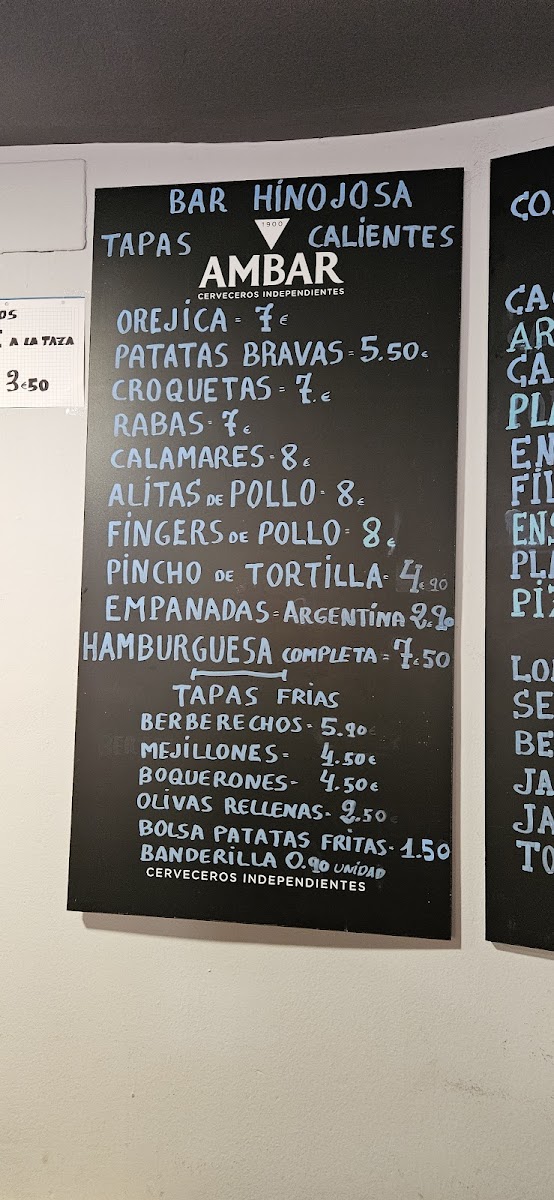 BAR HINOJOSA
1900
TAPAS CALIENTES
AMBAR
CERVECEROS INDEPENDIENTES
OREJICA = 7€
PATATAS BRAVAS = 5.50€
CROQUETAS - 7.€
RABAS - 7€
CALAMARES - 8€
ALITAS DE POLLO - 8€
FINGERS DE POLLO - 8€
PINCHO DE TORTILLA - 4€90
EMPANADAS = ARGENTINA 2€90
HAMBURGUESA COMPLETA = 7€50
TAPAS FRIAS
BERBERECHOS - 5.90€
MEJILLONES - 4.50€
BOQUERONES - 4.50€
OLIVAS RELLENAS - 2.50€
BOLSA PATATAS FRITAS - 1.50
BANDERILLA 0.90 UNIDAD
CERVECEROS INDEPENDIENTES
OS
A LA TAZA
3€50
CO
CA
AR
CA
PLA
EN
FIL
ENS
PLA
PIZ
LO
SE
BE
JA
JA
TO